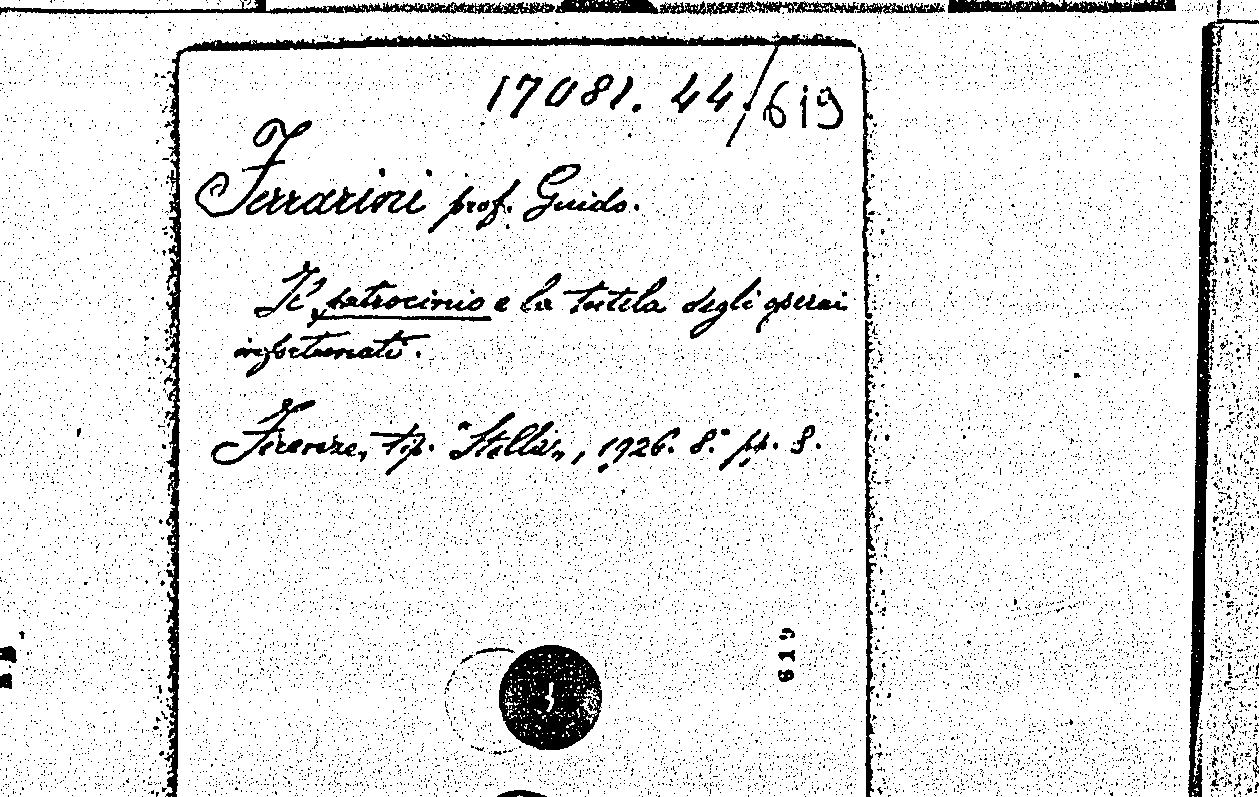 17081. 44./619
Ferrarini prof. Guido.
Il patrocinio e la tutela degli operai
infortunati.
Firenze, tip. "Stella", 1926. 8.° pp. 8.
619